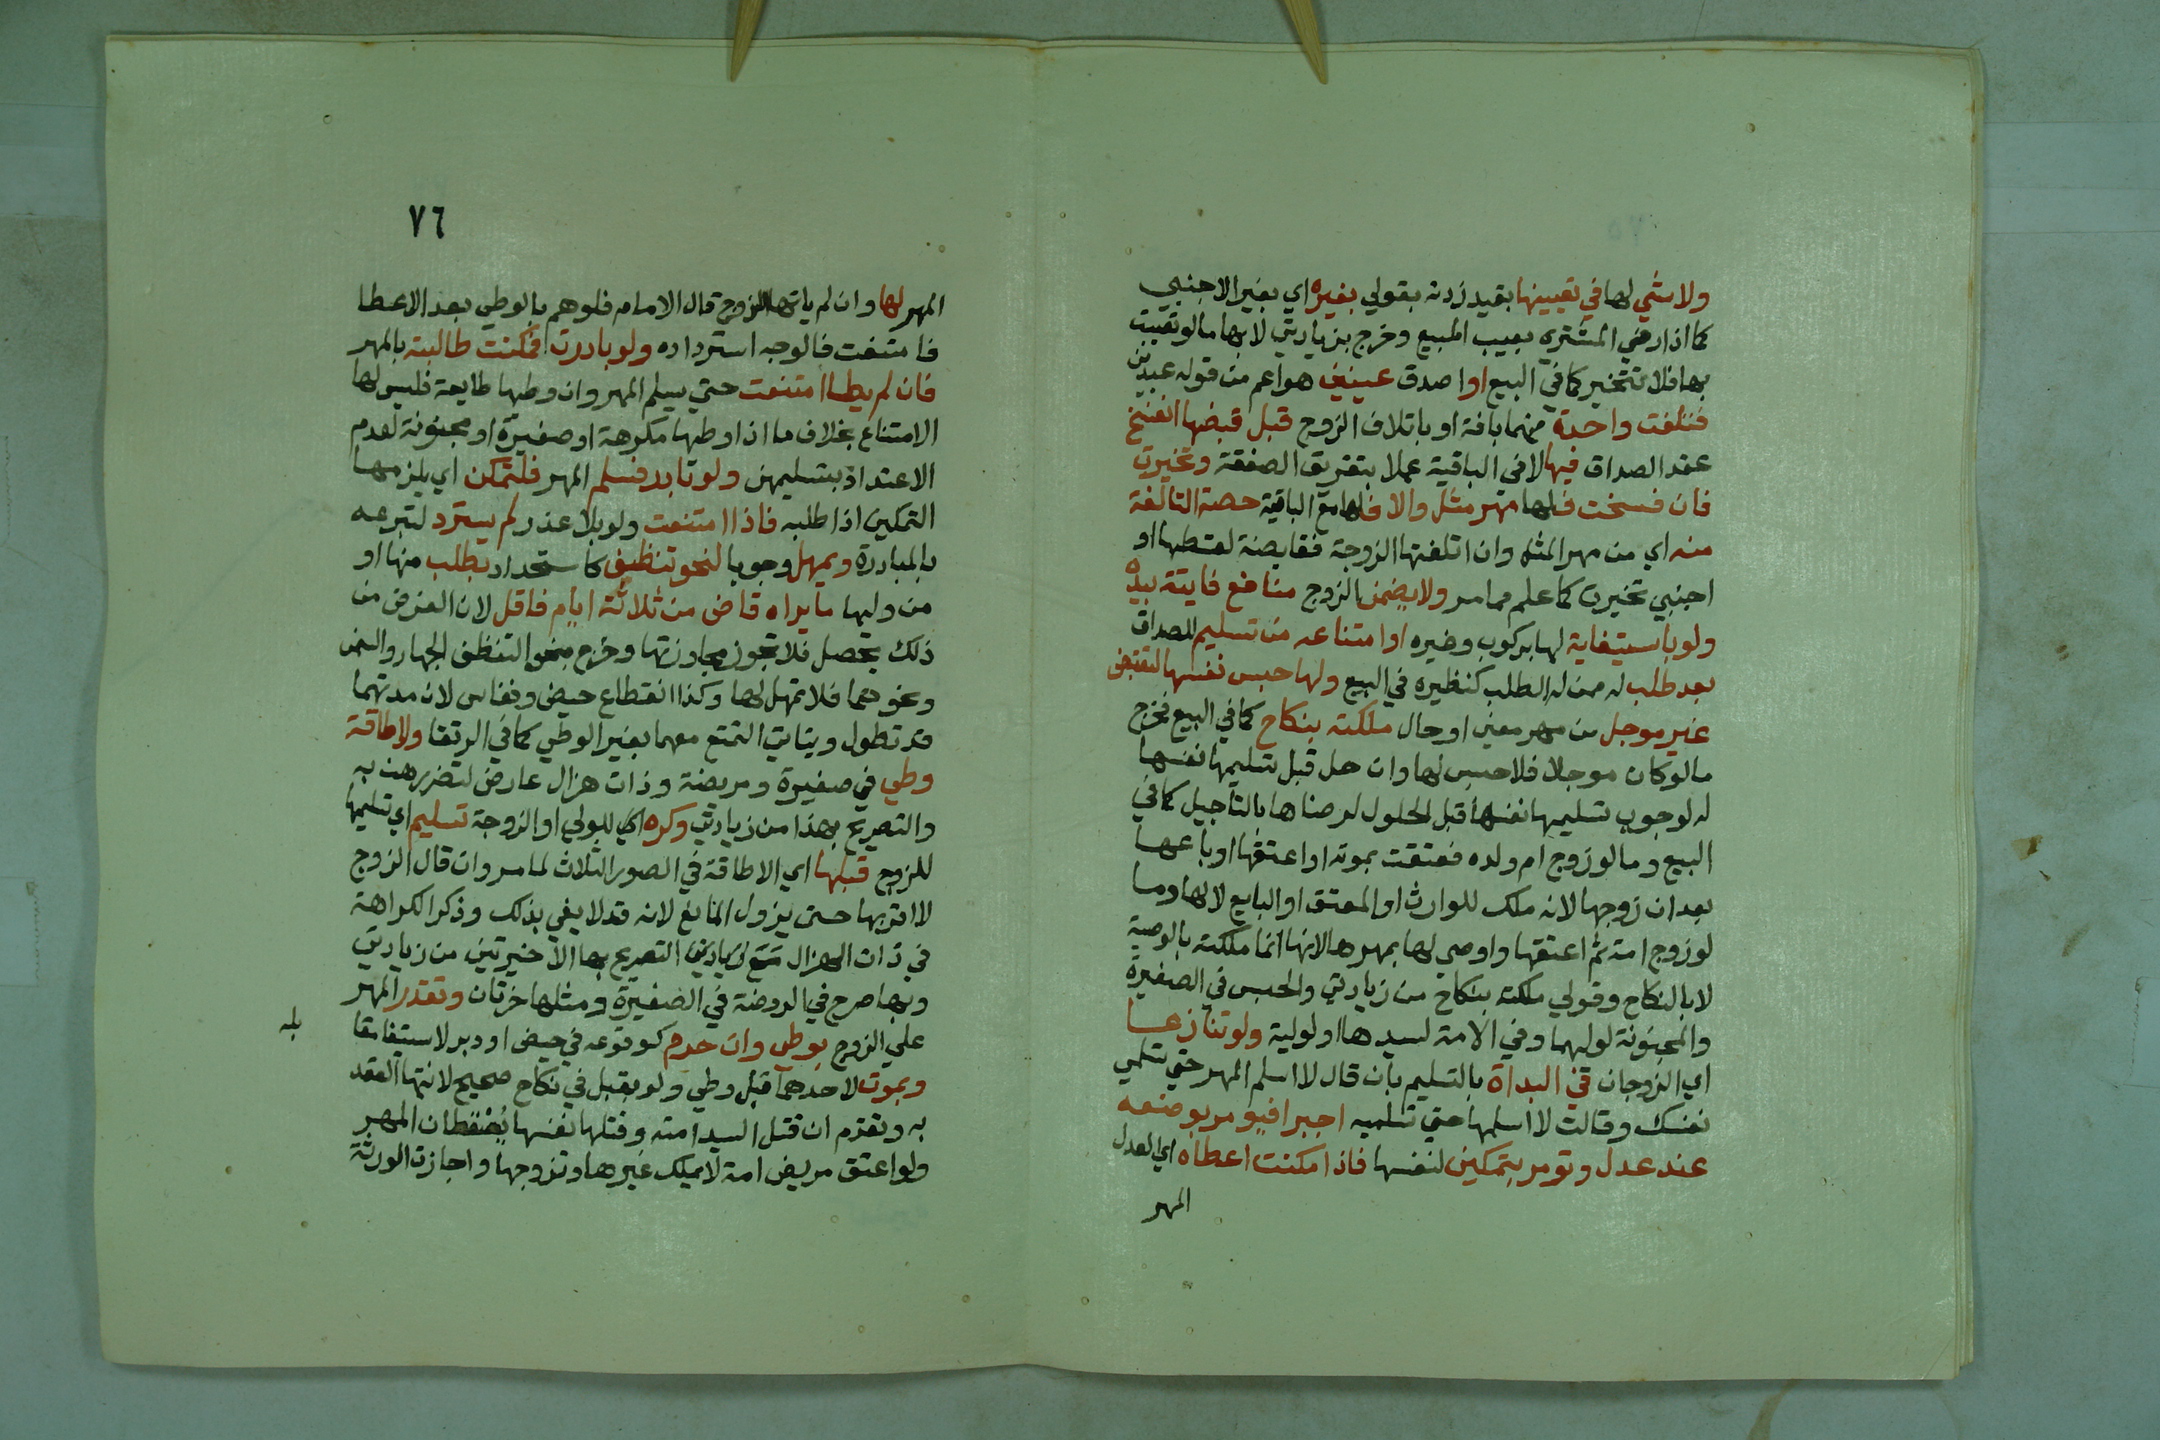 ولا شي لها في تعييبها بقيد زدته بقولي بغيره اي بغير الاجنبي
كما اذا رضي المشتري بعيب المبيع وخرج بزيادتي لا بها ما لو تعيبت
بها فلا تتخير كما في البيع او اصدق عينين هو اعم من قوله عبدين
فتلفت واحدة منهما بافة او باتلاف الزوج قبل قبضها انفسخ
عقد الصداق فيها لا في الباقية عملا بتفريق الصفقة وتخيرت
فان فسخت فلها مهر مثل والا فلها مع الباقية حصة التالفة
منه اي من مهر المثل وان اتلفتها الزوجة فقابضة لقسطها او
اجنبي تخيرت كما علم مما مر ولا يضمن الزوج منافع فايتة بيده
ولو باستيفاية لها بركوب وغيره او امتناعه من تسليم الصداق
بعد طلب له ممن له الطلب كنظيره في البيع ولها حبس نفسها لتقبض
غير موجل من مهر معين او حال ملكته بنكاح كما في البيع فخرج
ما لو كان موجلا فلا حبس لها وان حل قبل تسليمها نفسها
له لوجوب تسليمها نفسها قبل الحلول لرضاها بالتاجيل كما في
البيع وما لو زوج ام ولده فعتقت بموته او اعتقها او باعها
بعد ان زوجها لانه ملك للوارث او المعتق او البايع لا لها وما
لو زوج امة ثم اعتقها واوصى لها بمهرها لانها انما ملكته بالوصية
لا بالنكاح وقولي ملكته بنكاح من زيادتي والحبس في الصغيرة
والمجنونة لوليهما وفي الامة لسيدها او لوليه ولو تنازعا
اي الزوجان في البداة بالتسليم بان قال لا اسلم المهر حتى تسلمي
نفسك وقالت لا اسلمها حتي تسلمه اجبرا فيومر بوضعه
عند عدل وتومر بتمكين لنفسها فاذا مكنت اعطاه اي العدل
المهر
٧٦
المهر لها وان لم ياتها الزوج قال الامام فلو هم بالوطي بعد الاعطا
فامتنعت فالوجه استرداده ولو بادرت فمكنت طالبته بالمهر
فان لم يطا امتنعت حتي يسلم المهر وان وطيها طايعة فليس لها
الامتناع بخلاف ما اذا وطيها مكرهة او صغيرة او مجنونة لعدم
الاعتداد بتسليمهن ولو بادر فسلم المهر فلتمكن اي يلزمها
التمكين اذا طلبه فاذا امتنعت ولو بلا عذر لم يسترد لتبرعه
بالمبادرة ويمهل وجوبا لنحو تنظيف كاستحداد بطلب منها او
من وليها ما يراه قاض من ثلاثة ايام فاقل لان الغرض من
ذلك يحصل فلا تجوز مجاوزتها وخرج بنحو التنظف الجهاز والسمن
ونحوهما فلا تمهل لها وكذا انقطاع حيض ونفاس لان مدتهما
قد تطول ويتاتي التمتع معهما بغير الوطي كما في الرتقا ولاطاقة
وطي في صغيرة ومريضة وذات هزال عارض لتضررهن به
والتصريح بهذا من زيادتي وكره اي للولي او الزوجة تسليم اي تسليمها
للزوج قبلها اي الاطاقة في الصور الثلاث لما مر وان قال الزوج
لا اقربها حتى يزول المانع لانه قد لا يفي بذلك وذكر الكراهة
في ذات الهزال مع التصريح بها الاخيرتين من زيادتي
وبها صرح في الروضة في الصغيرة ومثلها خرتان وتقرر المهر
علي الزوج بوطي وان حرم كوقوعه في حيض او دبر لاستيفا
وبموت لاحدهما قبل وطي ولو بقتل في نكاح صحيح لانتها العقد
به وتقدم ان قتل السيد امته وقتلها نفسها يسقطان المهر
ولو اعتق مريض امة لا يملك غيرها وتزوجها واجازت الورثة